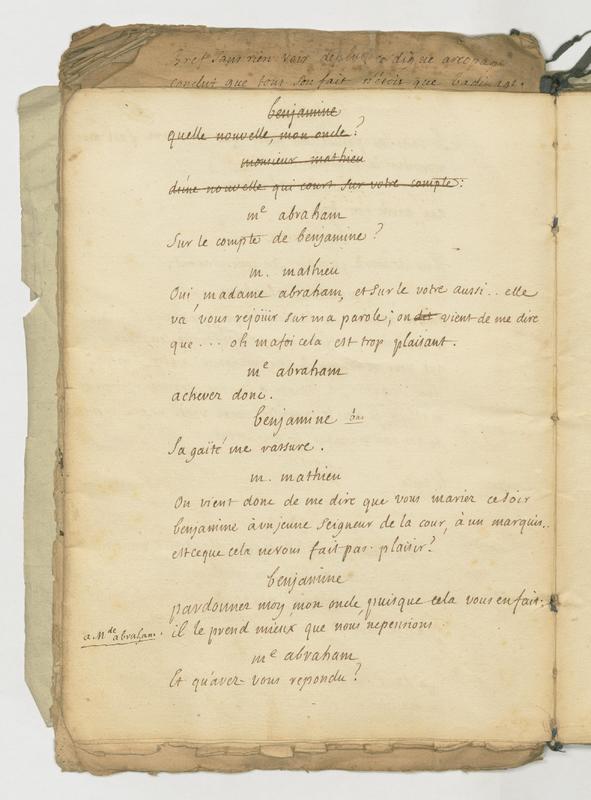 bref sans rien voir de plus ce digne
conclut que tout son fait n'étoit que badinage.
benjamine
quelle nouvelle, mon oncle?
monsieur mathieu
d'une nouvelle qui court sur votre compte:
me abraham
Sur le compte de benjamine?
m. mathieu
Oui, madame abraham, et sur le votre aussi.. elle
va vous rejoüir sur ma parole; on dit vient de me dire
que... oh ma foi cela est trop plaisant.
me abraham
achevez donc.
benjamine bas
Sa gaité me rassure.
m. mathieu
On vient donc de me dire que vous mariez ce soir
benjamine à un jeune seigneur de la cour, à un marquis..
est ce que cela ne vous fait pas plaisir?
benjamine
pardonnez moy, mon oncle, puisque cela vous en fait.
a Mde abraham. il le prend mieux que nous ne pensions
me abraham
Et qu'avez-vous repondu?